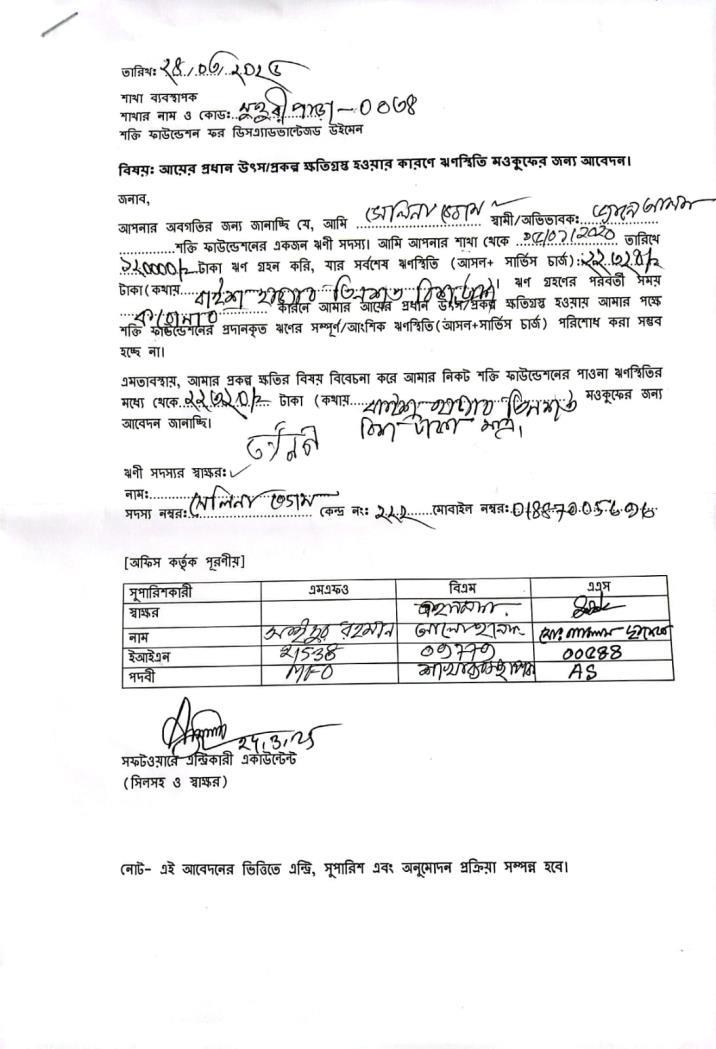 তারিখঃ ২৪/০৩/২০২৫
শাখা ব্যবস্থাপক
শাখার নাম ও কোড: মুহুরী পাড়া-০০৩৪
শক্তি ফাউন্ডেশন ফর ডিসএ্যাডভান্টেজড উইমেন
বিষয়ঃ আয়ের প্রধান উৎস/প্রকল্প ক্ষতিগ্রস্ত হওয়ার কারণে ঋণস্থিতি মওকুফের জন্য আবেদন।
জনাব,
আপনার অবগতির জন্য জানাচ্ছি যে, আমি সেলিনা বেগম স্বামী/অভিভাবক:
শক্তি ফাউন্ডেশনের একজন ঋণী সদস্য। আমি আপনার শাখা থেকে তারিখে
টাকা ঋণ গ্রহন করি, যার সর্বশেষ ঋণস্থিতি (আসল+ সার্ভিস চার্জ):
টাকা(কথায় বাইশ হাজার তিনশত বিশ টাকা) ঋণ গ্রহণের পরবর্তী সময়
কারনে আমার আয়ের প্রধান উৎস/প্রকল্প ক্ষতিগ্রস্ত হওয়ায় আমার পক্ষে
শক্তি ফাউন্ডেশনের প্রদানকৃত ঋণের সম্পূর্ণ/আংশিক ঋণস্থিতি(আসল+সার্ভিস চার্জ) পরিশোধ করা সম্ভব
হচ্ছে না।
এমতাবস্থায়, আমার প্রকল্প ক্ষতির বিষয় বিবেচনা করে আমার নিকট শক্তি ফাউন্ডেশনের পাওনা ঋণস্থিতির
মধ্যে থেকে ২২৩২০/= টাকা (কথায় বাইশ হাজার তিনশত মওকুফের জন্য
আবেদন জানাচ্ছি। বিশ টাকা মাত্র।
ঋণী সদস্যর স্বাক্ষর:
নাম: সেলিনা বেগম
সদস্য নম্বর: কেন্দ্র নং: ২২২ মোবাইল নম্বর:
[অফিস কর্তৃক পূরণীয়]
সুপারিশকারী এমএফও বিএম এএস
স্বাক্ষর
নাম রহমান
ইআইএন 21538 09779 00288
পদবী MFO শাখা ব্যবস্থাপক AS
24.3.25
সফটওয়ারে এন্ট্রিকারী একাউন্টেন্ট
(সিলসহ ও স্বাক্ষর)
নোট- এই আবেদনের ভিত্তিতে এন্ট্রি, সুপারিশ এবং অনুমোদন প্রক্রিয়া সম্পন্ন হবে।